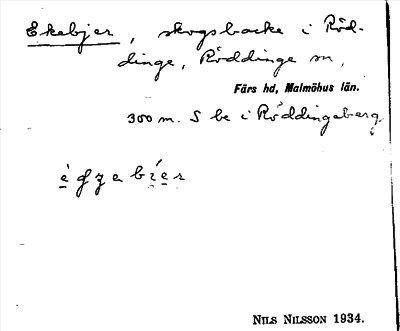 Ekebjer, skogsbacke i Röd-
dinge, Röddinge sn,
Färs hd, Malmöhus län.
300 m. S be i Röddingeberg
NILS NILSSON 1934.